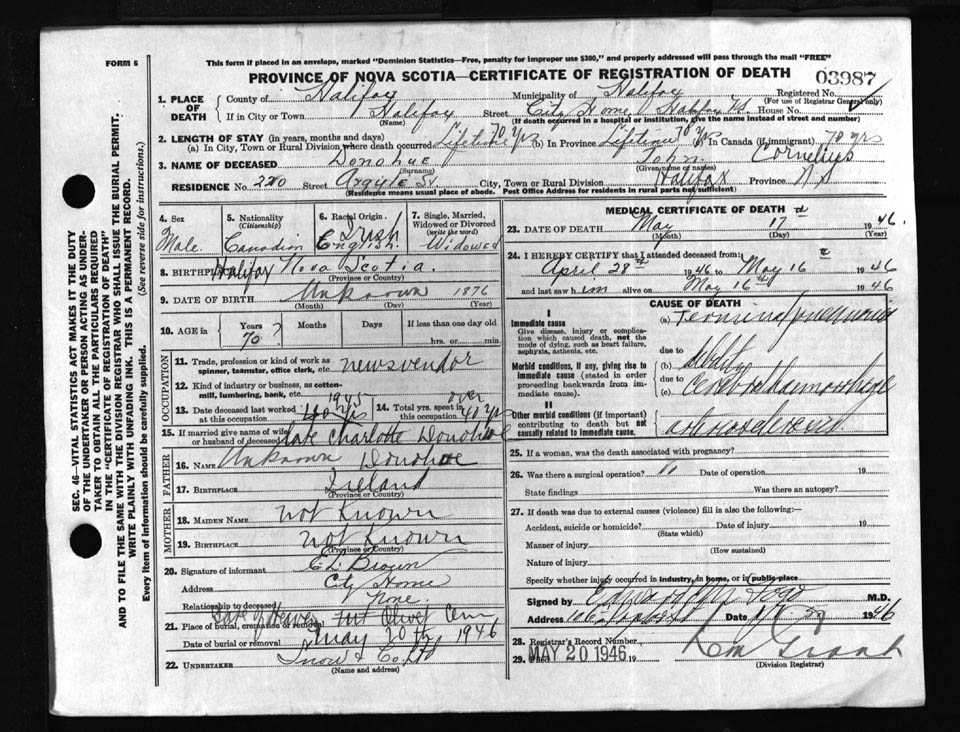 FORM 6
This form if placed in an envelope, marked "Dominion Statistics—Free, penalty for improper use $300," and properly addressed will pass through the mail "FREE"
PROVINCE OF NOVA SCOTIA—CERTIFICATE OF REGISTRATION OF DEATH
03987
1. PLACE OF DEATH
County of Halifax Municipality of Halifax Registered No.
(For use of Registrar General only)
If in City or Town Halifax Street City Home, Halifax NS House No.
(Name) (If death occurred in a hospital or institution, give the name instead of street and number)
2. LENGTH OF STAY (in years, months and days)
(a) In City, Town or Rural Division where death occurred Lifetime 70 yrs (b) In Province Lifetime 70 yrs (c) In Canada (if immigrant) 70 yrs
3. NAME OF DECEASED Donohue John Cornelius
(Surname) (Given name or names)
RESIDENCE No. 220 Street Argyle St. City, Town or Rural Division Halifax Province NS
(Residence means usual place of abode. Post Office Address for residents in rural parts not sufficient)
4. Sex Male
5. Nationality (Citizenship) Canadian
6. Racial Origin Irish English
7. Single, Married, Widowed or Divorced (write the word) Widowed
8. BIRTHPLACE Halifax Nova Scotia.
(Province or Country)
9. DATE OF BIRTH Unknown 1876
(Month) (Day) (Year)
10. AGE in Years 70 ? Months Days If less than one day
hrs. or min.
OCCUPATION
11. Trade, profession or kind of work as spinner, teamster, office clerk, etc. newsvendor
12. Kind of industry or business, as cotton-mill, lumbering, bank, etc.
13. Date deceased last worked at this occupation 1945
14. Total yrs. spent in this occupation over 40 yrs
15. If married give name of wife or husband of deceased late Charlotte Donohue
FATHER
16. NAME Unknown Donohue
17. BIRTHPLACE Ireland
(Province or Country)
MOTHER
18. MAIDEN NAME not known
19. BIRTHPLACE not known
(Province or Country)
20. Signature of informant Brown
Address City Home
Relationship to deceased None.
21. Place of burial, cremation or removal Gate of Heaven Mt Olivet Cem
Date of burial or removal May 20th 1946
22. UNDERTAKER Snow & Co Ltd
(Name and address)
MEDICAL CERTIFICATE OF DEATH
23. DATE OF DEATH May 17th 1946.
(Month) (Day) (Year)
24. I HEREBY CERTIFY that I attended deceased from:
April 28th 1946 to May 16th 1946
and last saw him alive on May 16th 1946
CAUSE OF DEATH
I
Immediate cause
Give disease, injury or complication which caused death, not the mode of dying, such as heart failure, asphyxia, asthenia, etc.
(a) Terminal pneumonia
due to
Morbid conditions, if any, giving rise to immediate cause (stated in order proceeding backwards from immediate cause).
(b) debility
due to
(c) Cerebral haemorrhage
II
Other morbid conditions (if important) contributing to death but not causally related to immediate cause.
arteriosclerosis.
25. If a woman, was the death associated with pregnancy?
26. Was there a surgical operation? Date of operation 19
State findings Was there an autopsy?
27. If death was due to external causes (violence) fill in also the following:—
Accident, suicide or homicide? Date of injury 19
(State which)
Manner of injury
(How sustained)
Nature of injury
Specify whether injury occurred in industry, in home, or in public place
Signed by M.D.
Address Date 46
28. Registrar's Record Number
29. Filed MAY 20 1946 19
Grant
(Division Registrar)
SEC. 46—VITAL STATISTICS ACT MAKES IT THE DUTY
OF THE UNDERTAKER OR PERSON ACTING AS UNDER-
TAKER TO OBTAIN ALL THE PARTICULARS REQUIRED
IN THE "CERTIFICATE OF REGISTRATION OF DEATH"
AND TO FILE THE SAME WITH THE DIVISION REGISTRAR WHO SHALL ISSUE THE BURIAL PERMIT.
WRITE PLAINLY WITH UNFADING INK. THIS IS A PERMANENT RECORD.
Every item of information should be carefully supplied. (See reverse side for instructions.)